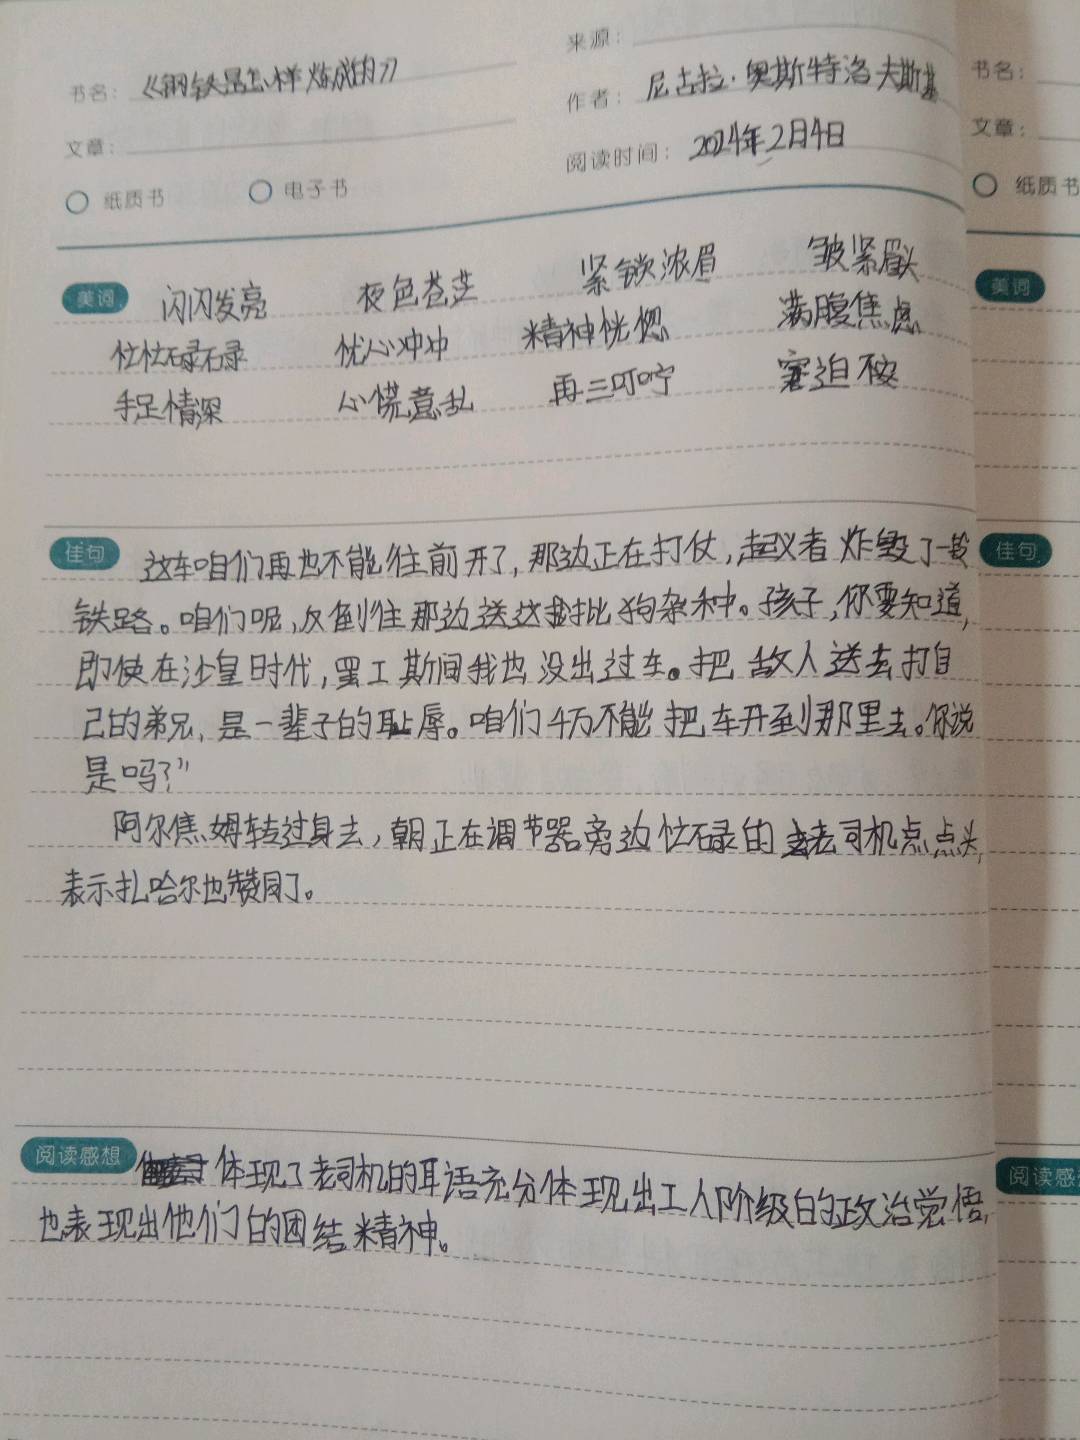 来源：
书名：《钢铁是怎样炼成的》
作者：尼古拉·奥斯特洛夫斯基
文章：
阅读时间：2024年2月4日
纸质书 电子书
美词 闪闪发亮 夜色苍茫 紧锁浓眉 皱紧眉头
忙忙碌碌 忧心冲冲 精神恍惚 满腹焦虑
手足情深 心慌意乱 再三叮咛
佳句 这车咱们再也不能往前开了，那边正在打仗，起义者炸毁了一段
铁路。咱们呢，反倒往那边送这批狗杂种。孩子，你要知道，
即使在沙皇时代，罢工期间我也没出过车。把敌人送去打自
己的弟兄，是一辈子的耻辱。咱们千万不能把车开到那里去。你说
是吗？”
阿尔焦姆转过身去，朝正在调节器旁边忙碌的老司机点点头，
表示扎哈尔也赞同了。
阅读感想 体现了老司机的耳语充分体现出工人阶级的政治觉悟，
也表现出他们的团结精神。
书名：
文章：
纸质书
美词
佳句
阅读感